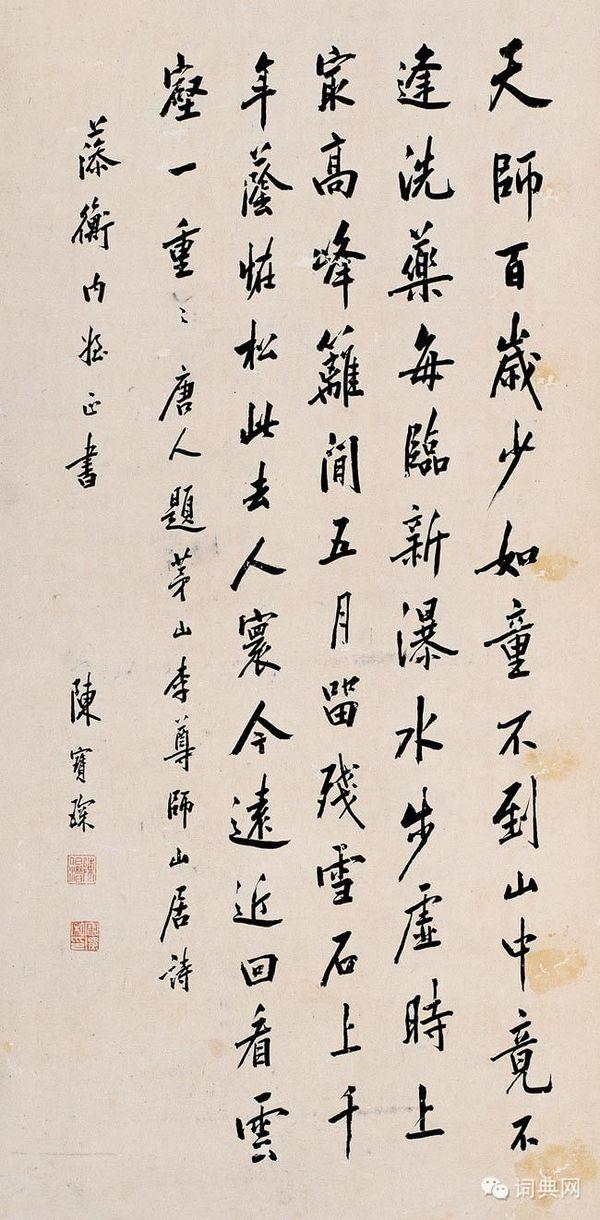 天師百歲少如童不到山中竟不
逢洗藥每臨新瀑水步虛時上
最高峰籬間五月留殘雪石上千
年蔭恠松此去人寰今遠近回看雲
壑一重〻唐人題茅山李尊師山居詩
衡內姪正書
陳寶琛
词典网